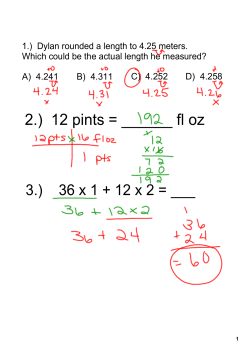 1.) Dylan rounded a length to 4.25 meters.
Which could be the actual length he measured?
A) 4.241 B) 4.311 C) 4.252 D) 4.258
4.24 4.31 4.25 4.26
x x x
2.) 12 pints = 192 fl oz
12 pts x 16 fl oz
1 pts
12
x 16
72
120
192
3.) 36 x 1 + 12 x 2 = ___
36 + 12 x 2
36 + 24
1
36
+ 24
= 60
1